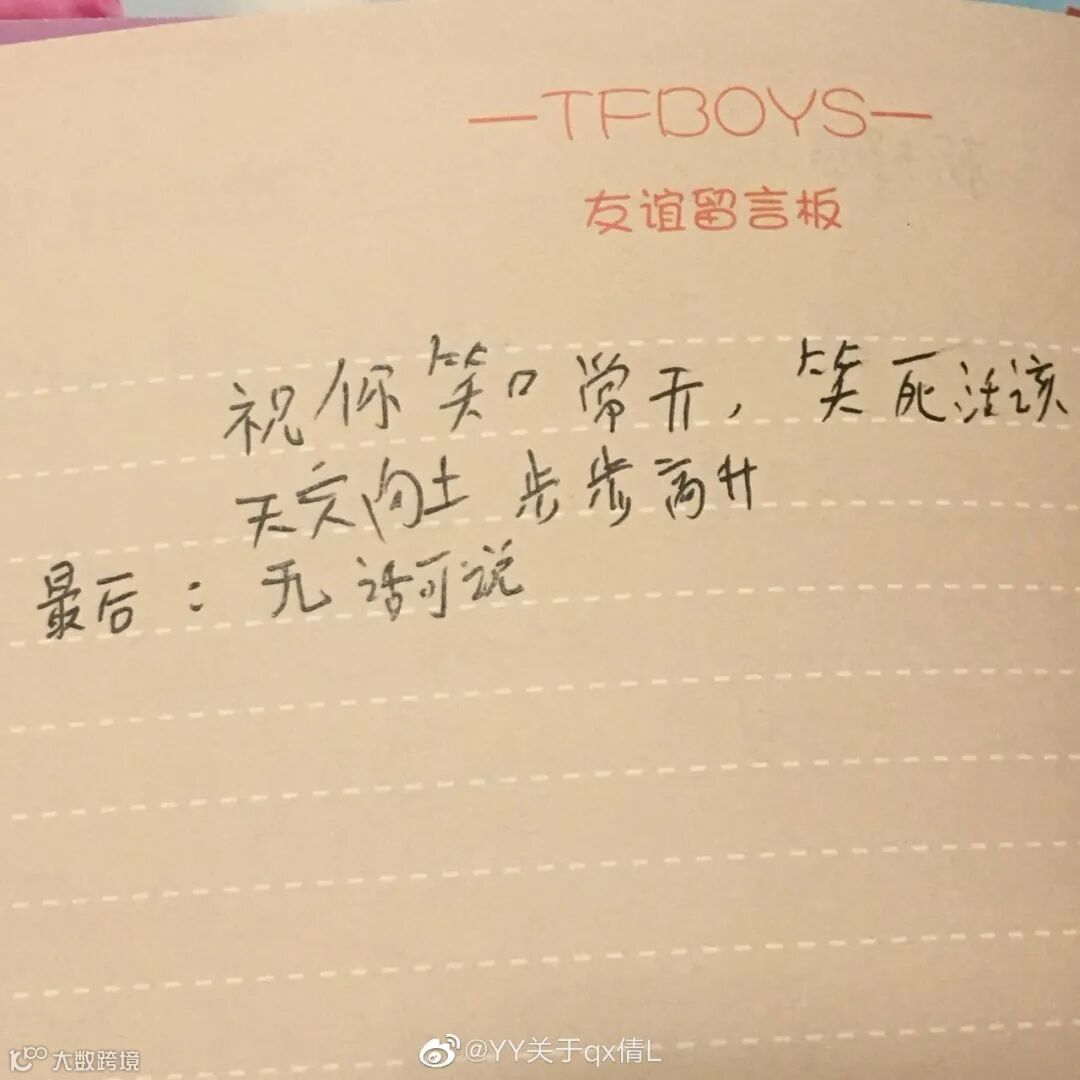 —TFBOYS—
友谊留言板
祝你笑口常开，笑死活该
天文向上 步步高升
最后：无话可说
@YY关于qx倩L
大数跨境